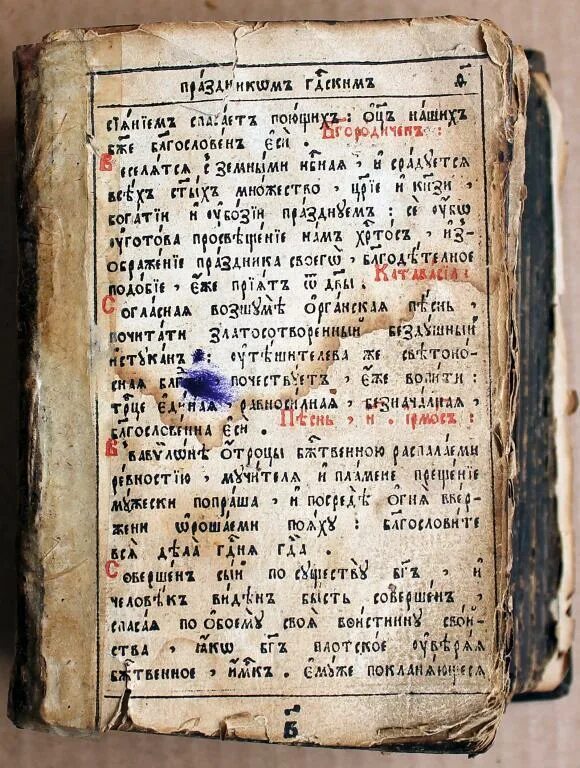 пра́здникѡмъ гдⷭ҇кимъ ѳ҃
сїѧ́нїемъ спаса́етъ пою́щихъ: ѻ҆ц҃ъ на́шихъ
бж҃е блгⷭ҇ове́нъ є҆сѝ. Бг҃оро́диченъ:
Веселѧ́тсѧ с̾ земны́ми нбⷭ҇наѧ, и҆ сра́дуетсѧ
всѣ́хъ ст҃ы́хъ мно́жество, цр҃і́е и҆ кнѧ҃зи,
бога́тїи и҆ ᲂу҆бо́зїи пра́зднуемъ: се́ ᲂу҆́бѡ
ᲂу҆гото́ва просвѣще́нїе на́мъ хрⷭ҇то́съ, и҆з̾-
ѡбраже́нїе пра́здника своегѡ̀, бл҃годѣ́телное
подо́бїе, є҆́же прїѧ́тъ ѿ дв҃ы. Катава́сїа:
Согла́снаѧ возшумѣ̀ ѻ҆рга́нскаѧ пѣ́снь,
почита́ти златосотворе́нный безду́шный
и҆стꙋка́нъ: ᲂу҆тѣ́шителева же свѣтоно́-
снаѧ почеству́етъ, є҆́же вопи́ти:
трⷪ҇це є҆ди́наѧ, равноси́лнаѧ, безнача́лнаѧ,
блгⷭ҇ове́нна є҆сѝ. Пѣ́снь, и҃. і҆рмо́съ:
В̾ вавѷлѡ́нѣ ѻ҆́троцы бж҃е́ственною распала́еми
ре́вностїю, мучи́телѧ и҆ пла́мене преще́нїе
му́жески попра́ша, и҆ посредѣ̀ ѻ҆гнѧ̀ вве́р-
жени ѡ҆роша́еми поѧ́ху: благослови́те
всѧ̑ дѣла̀ гдⷭ҇нѧ гдⷭ҇а.
Соверше́нъ сы́й по существу̀ бг҃ъ, и҆
человѣ́къ ви́дѣнъ бы́сть соверше́нъ,
спаса́ѧ по ѻ҆бо́ему своѧ̑ вои́стинну сво́й-
ства, ꙗ҆́кѡ бг҃ъ пло́тское ᲂу҆вѣрѧ́ѧ
бж҃е́ственное, и҆мⷤ҇къ. є҆му́же покланѧ́ющесѧ
б҃